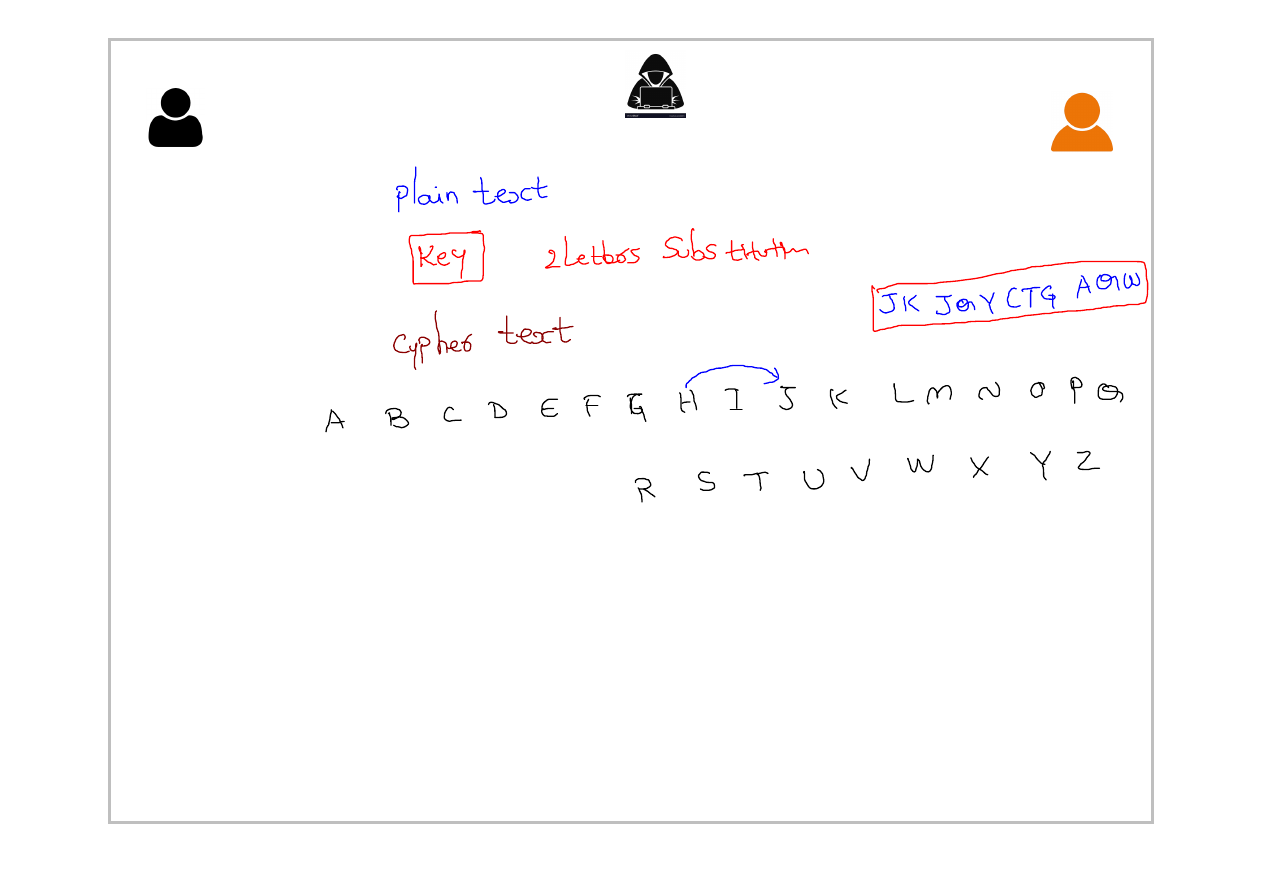 Plain text
Key 2 Letters Substitution
JK JQY CTG AQW
Cypher text
A B C D E F G H I J K L M N O P Q
R S T U V W X Y Z